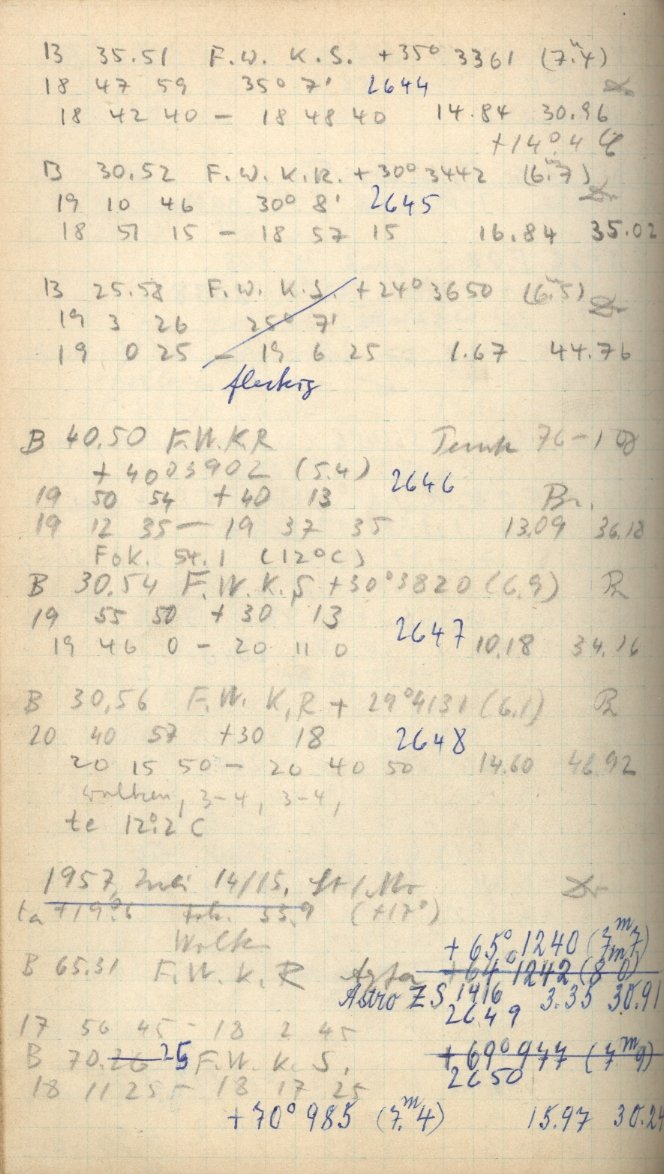 B 35.51 F.W. K.S. +35° 3361 (7.ᵐ4)
18 47 59 35° 7' 2644
18 42 40 – 18 48 40 14.84 30.96
+14°.4 C
B 30.52 F.W. K.R. +30° 3442 (6.ᵐ7)
19 10 46 30° 8' 2645
18 51 15 – 18 57 15 16.84 35.02
B 25.58 F.W. K.S. +24° 3650 (6.ᵐ5)
19 3 26 25° 7'
19 0 25 – 19 6 25 1.67 44.76
fleckig
B 40.50 F.W.K.R
+40°3902 (5.4) 2646
19 50 54 +40 13 Br.
19 12 35 – 19 37 35 13.09 36.18
Fok. 54.1 (12°C)
B 30.54 F.W.K.S +30°3820 (6.9)
19 55 50 +30 13 2647
19 46 0 – 20 11 0 10.18 34.16
B 30,56 F.W. K,R + 29°4131 (6.1)
20 40 57 +30 18 2648
20 15 50 – 20 40 50 14.60 46.92
Wolken, 3–4, 3–4,
te 12°.2 C
1957, Juli 14/15,
ta +19°.6 fok. 53.9 (+17°)
Wolk. +65° 1240 (7ᵐ7)
B 65.31 F.W. K. R Agfa +64° 1242 (8ᵐ0)
Astro ZS 1416 3.35 30.91
2649
17 56 45 – 18 2 45
B 70.26 25 F.W. K. S. +69° 977 (7ᵐ9)
2650
18 11 25 – 18 17 25
+70° 985 (7.ᵐ4) 15.97 30.24